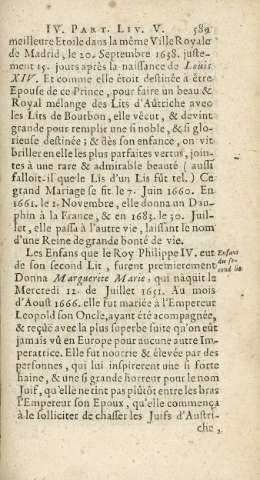 IV. PART. LIV. V. 589
meilleure Etoile dans la même Ville Royale
de Madrid, le 20. Septembre 1638. juste-
ment 15. jours après la naissance de Louis
XIV. Et comme elle êtoit destinée à être
Epouse de ce Prince, pour faire un beau &
Royal mélange des Lits d'Aûtriche avec
les Lits de Bourbon, elle vécut, & devint
grande pour remplir une si noble, & si glo-
rieuse destinée; & dès son enfance, on vit
briller en elle les plus parfaites vertus, join-
tes à une rare & admirable beauté (aussi
falloit-il que le Lis d'un Lis fût tel.) Ce
grand Mariage se fit le 7. Juin 1660. En
1661. le 1. Novembre, elle donna un Dau-
phin à la France, & en 1683. le 30. Juil-
let, elle passa à l'autre vie, laissant le nom
d'une Reine de grande bonté de vie.
Les Enfans que le Roy Philippe IV. eut
de son second Lit, furent premierement
Donna Marguerite Marie, qui nâquit le
Mercredi 12. de Juillet 1651. Au mois
d'Aoust 1666. elle fut mariée à l'Empereur
Leopold son Oncle, ayant été acompagnée,
& reçûë avec la plus superbe suite qu'on eût
jamais vû en Europe pour aucune autre Im-
peratrice. Elle fut nourrie & élevée par des
personnes, qui lui inspirerent une si forte
haine, & une si grande horreur pour le nom
Juif, qu'elle ne tint pas plûtôt entre les bras
l'Empereur son Epoux, qu'elle commença
à le solliciter de chasser les Juifs d'Austri-
che,
Enfans
du se-
cond lit